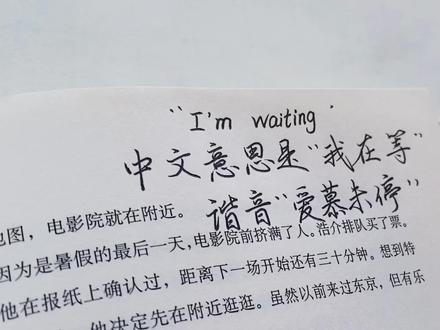 “I'm waiting’
中文意思是“我在等”
谐音“爱慕未停”
地图，电影院就在附近。
因为是暑假的最后一天，电影院前挤满了人。浩介排队买了票。
他在报纸上确认过，距离下一场开始还有三十分钟。想到特
他决定先在附近逛逛。虽然以前来过东京，但有乐